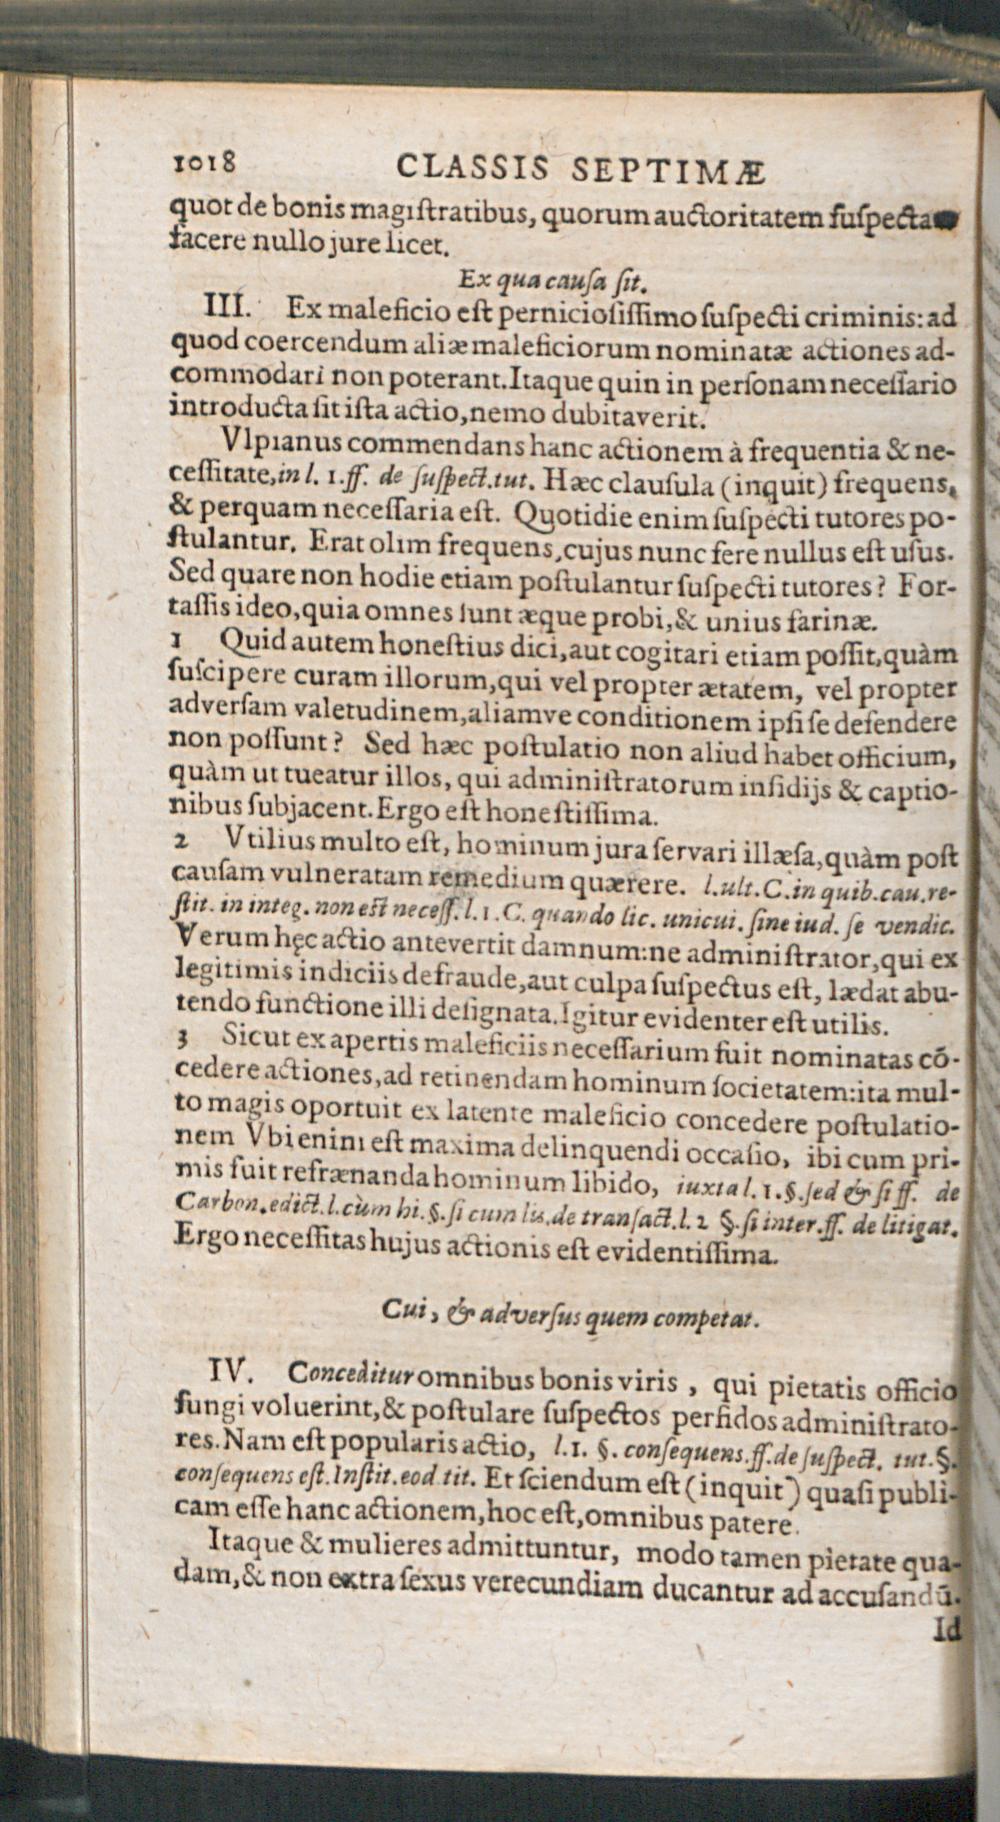 1018 CLASSIS SEPTIMÆ
quot de bonis magistratibus, quorum auctoritatem suspecta
facere nullo jure licet.
Ex qua causa sit.
III. Ex maleficio est perniciosissimo suspecti criminis: ad
quod coercendum aliæ maleficiorum nominatæ actiones ad-
commodari non poterant. Itaque quin in personam necessario
introducta sit ista actio, nemo dubitaverit.
Vlpianus commendans hanc actionem à frequentia & ne-
cessitate, in l. 1. ff. de suspect. tut. Hæc clausula (inquit) frequens,
& perquam necessaria est. Quotidie enim suspecti tutores po-
stulantur. Erat olim frequens, cujus nunc fere nullus est usus.
Sed quare non hodie etiam postulantur suspecti tutores? For-
tassis ideo, quia omnes sunt æque probi, & unius farinæ.
1 Quid autem honestius dici, aut cogitari etiam possit, quàm
suscipere curam illorum, qui vel propter ætatem, vel propter
adversam valetudinem, aliamve conditionem ipsi se defendere
non possunt? Sed hæc postulatio non aliud habet officium,
quàm ut tueatur illos, qui administratorum insidijs & captio-
nibus subjacent. Ergo est honestissima.
2 Vtilius multo est, hominum jura servari illæsa, quàm post
causam vulneratam remedium quærere. l. ult. C. in quib. cau. re-
stit. in integ. non est necess. l. 1. C. quando lic. unicui. sine iud. se vendic.
Verum hęc actio antevertit damnum: ne administrator, qui ex
legitimis indiciis de fraude, aut culpa suspectus est, lædat abu-
tendo functione illi designata. Igitur evidenter est utilis.
3 Sicut ex apertis maleficiis necessarium fuit nominatas cō-
cedere actiones, ad retinendam hominum societatem: ita mul-
to magis oportuit ex latente maleficio concedere postulatio-
nem Vbi enim est maxima delinquendi occasio, ibi cum pri-
mis fuit refrænanda hominum libido, iuxta l. 1. §. sed & si ff. de
Carbon. edict. l. cùm hi. §. si cum lis. de transact. l. 2 §. si inter. ff. de litigat.
Ergo necessitas hujus actionis est evidentissima.
Cui, & adversus quem competat.
IV. Conceditur omnibus bonis viris, qui pietatis officio
fungi voluerint, & postulare suspectos perfidos administrato-
res. Nam est popularis actio, l. 1. §. consequens. ff. de suspect. tut. §.
consequens est. Instit. eod. tit. Et sciendum est (inquit) quasi publi-
cam esse hanc actionem, hoc est, omnibus patere.
Itaque & mulieres admittuntur, modo tamen pietate qua-
dam, & non extra sexus verecundiam ducantur ad accusandū.
Id